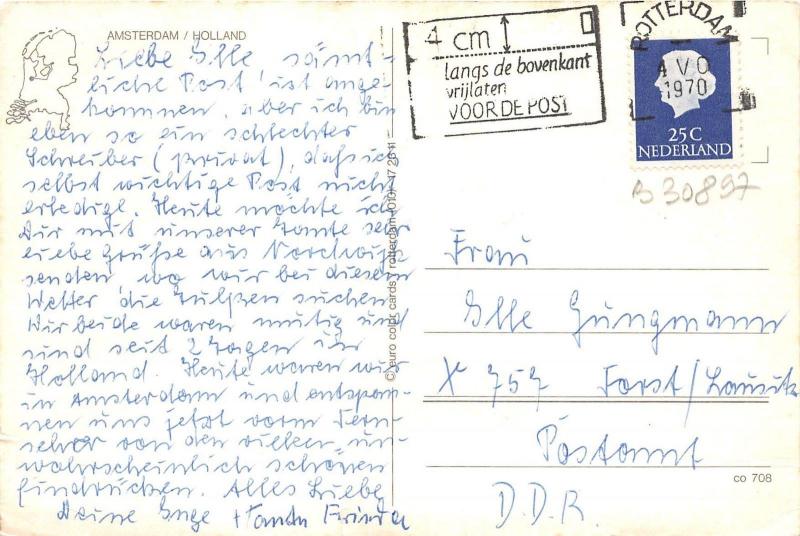 AMSTERDAM / HOLLAND
Liebe Elle sämt-
liche Post ist ange-
kommen, aber ich bin
eben so ein schlechter
Schreiber (privat), daß ich
selbst wichtige Post nicht
erledige. Heute möchte ich
Dir mit unserer Tante sehr
liebe Grüße aus
senden, wo wir bei diesem
Wetter die Tulpen suchen.
Wir beide waren mutig und
sind seit 2 Tagen in
Holland. Heute waren wir
in Amsterdam und entspan-
nen uns jetzt vorm Fern-
seher von den vielen un-
wahrscheinlich schönen
Eindrücken. Alles Liebe
Deine Inge + Tante Frieda
© euro color cards rotterdam (010) - 17 28 11
4 cm
langs de bovenkant
vrijlaten
VOOR DE POST
ROTTERDAM
4 V 0
1970
25 C
NEDERLAND
B 30897
Frau
Elle Jungmann
X 757 Forst/Lausitz
Postamt
D.D.R.
co 708